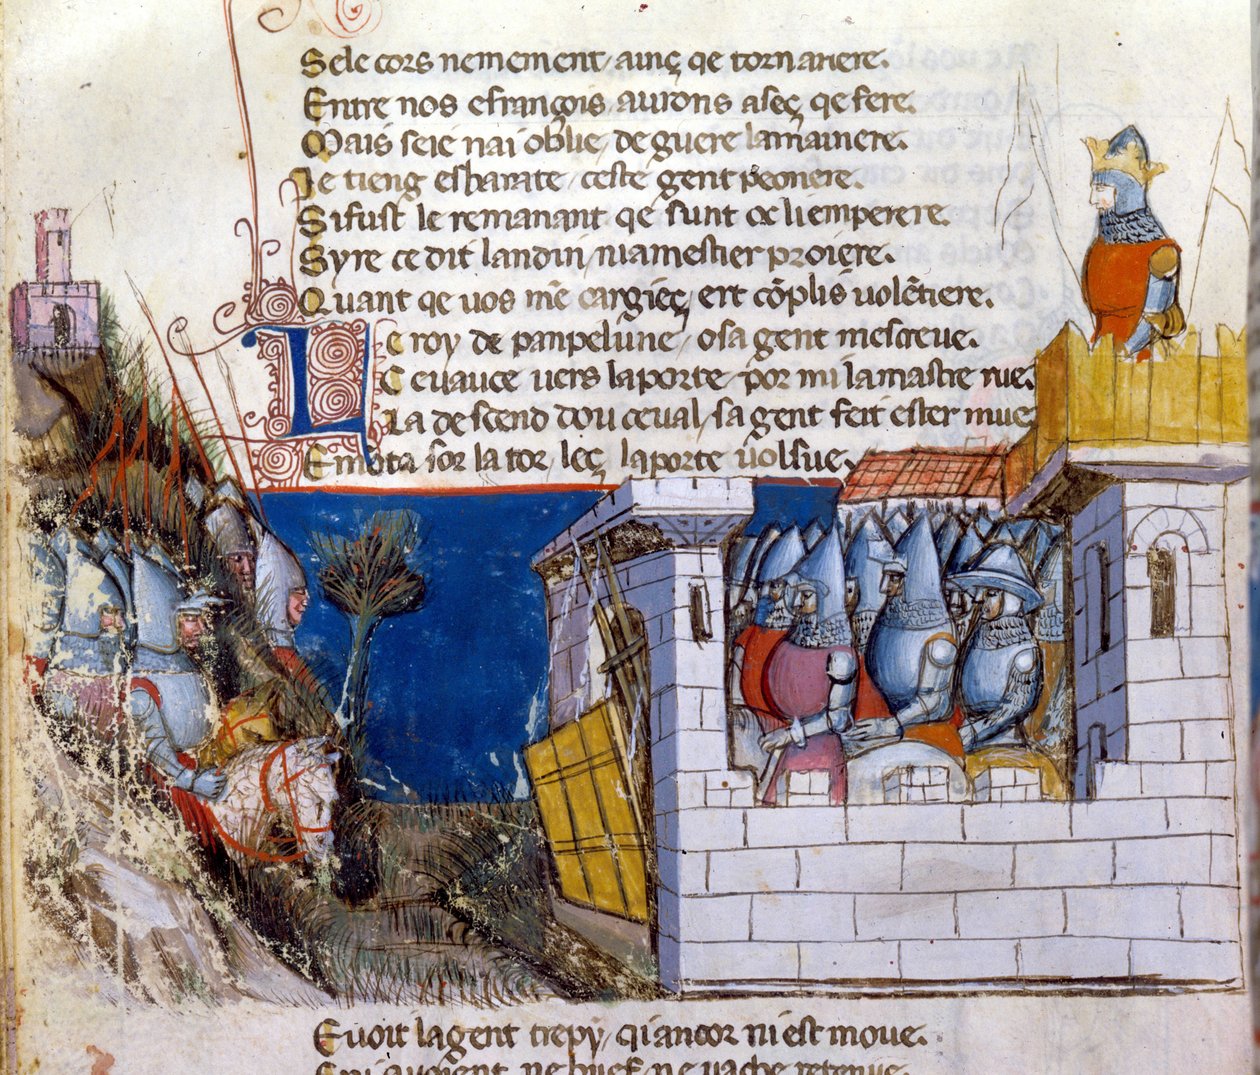 Se le cors ne me ment, ainç qe torn ariere.
Entre nos e françois aurons aseç qe fere.
Mais se ie n'ai oblie, de guere la mainere.
Je tieng esbarate, ceste gent peonere.
Si fust le remanant qe sunt ou li emperere.
Syre ce dit landin, ni a mestier proiere.
Quant qe uos mē cargieç, ert cōplis uolētiere.
LE roy de panpelune, o sa gent mescreue.
Ceuauce uers la porte, por mi la mastre rue.
La descend dou ceual, sa gent feit ester mue
E mōta sor la tor, leç la porte uolsue.
E uoit la gent trepy, qi ancor ni est moue.